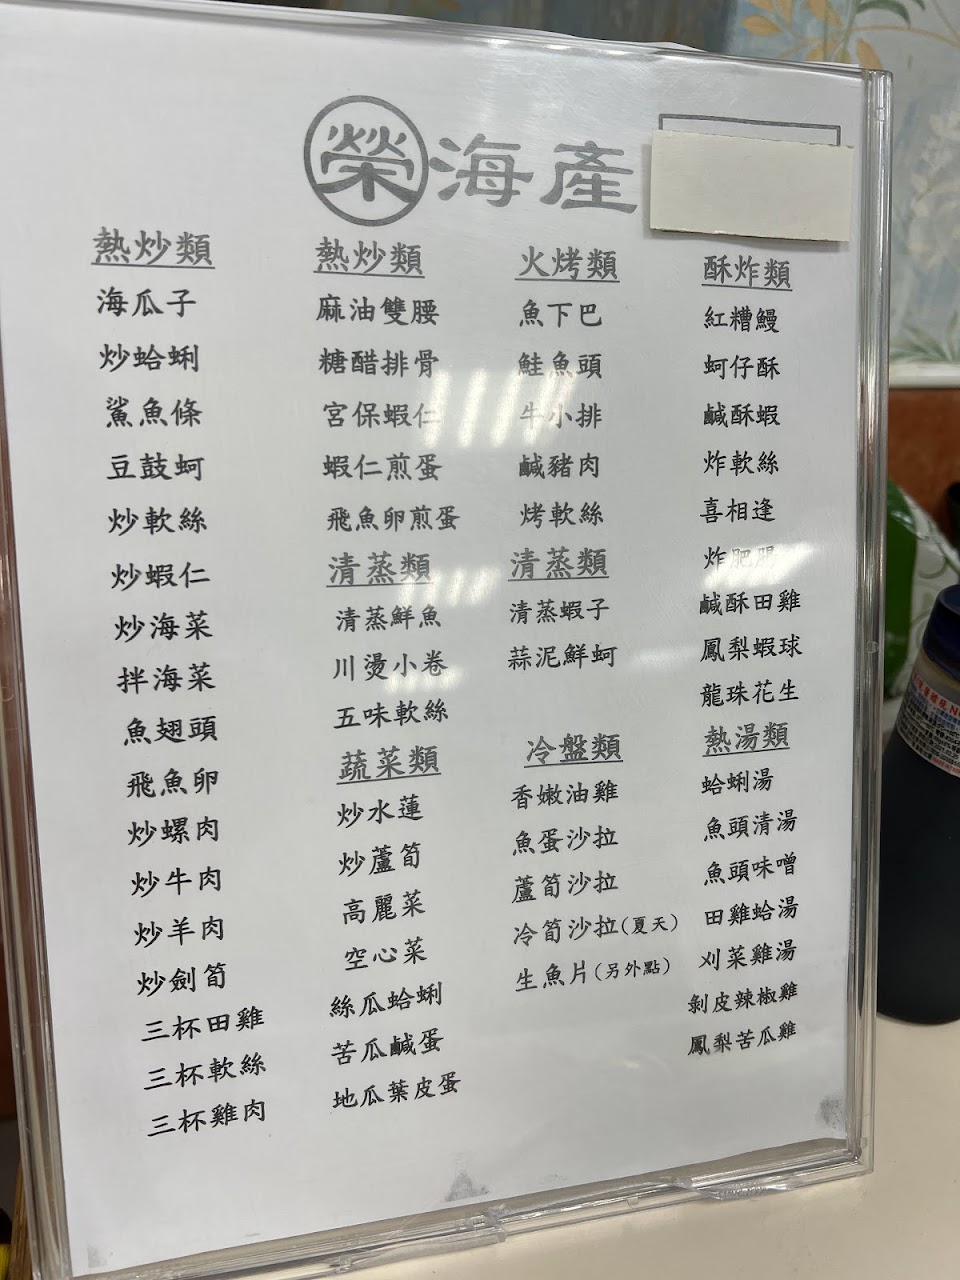 榮海產
熱炒類
海瓜子
炒蛤蜊
鯊魚條
豆鼓蚵
炒軟絲
炒蝦仁
炒海菜
拌海菜
魚翅頭
飛魚卵
炒螺肉
炒牛肉
炒羊肉
炒劍筍
三杯田雞
三杯軟絲
三杯雞肉
熱炒類
麻油雙腰
糖醋排骨
宮保蝦仁
蝦仁煎蛋
飛魚卵煎蛋
清蒸類
清蒸鮮魚
川燙小卷
五味軟絲
蔬菜類
炒水蓮
炒蘆筍
高麗菜
空心菜
絲瓜蛤蜊
苦瓜鹹蛋
地瓜葉皮蛋
火烤類
魚下巴
鮭魚頭
牛小排
鹹豬肉
烤軟絲
清蒸類
清蒸蝦子
蒜泥鮮蚵
冷盤類
香嫩油雞
魚蛋沙拉
蘆筍沙拉
冷筍沙拉(夏天)
生魚片(另外點)
酥炸類
紅糟鰻
蚵仔酥
鹹酥蝦
炸軟絲
喜相逢
炸肥腸
鹹酥田雞
鳳梨蝦球
龍珠花生
熱湯類
蛤蜊湯
魚頭清湯
魚頭味噌
田雞蛤湯
刈菜雞湯
剝皮辣椒雞
鳳梨苦瓜雞